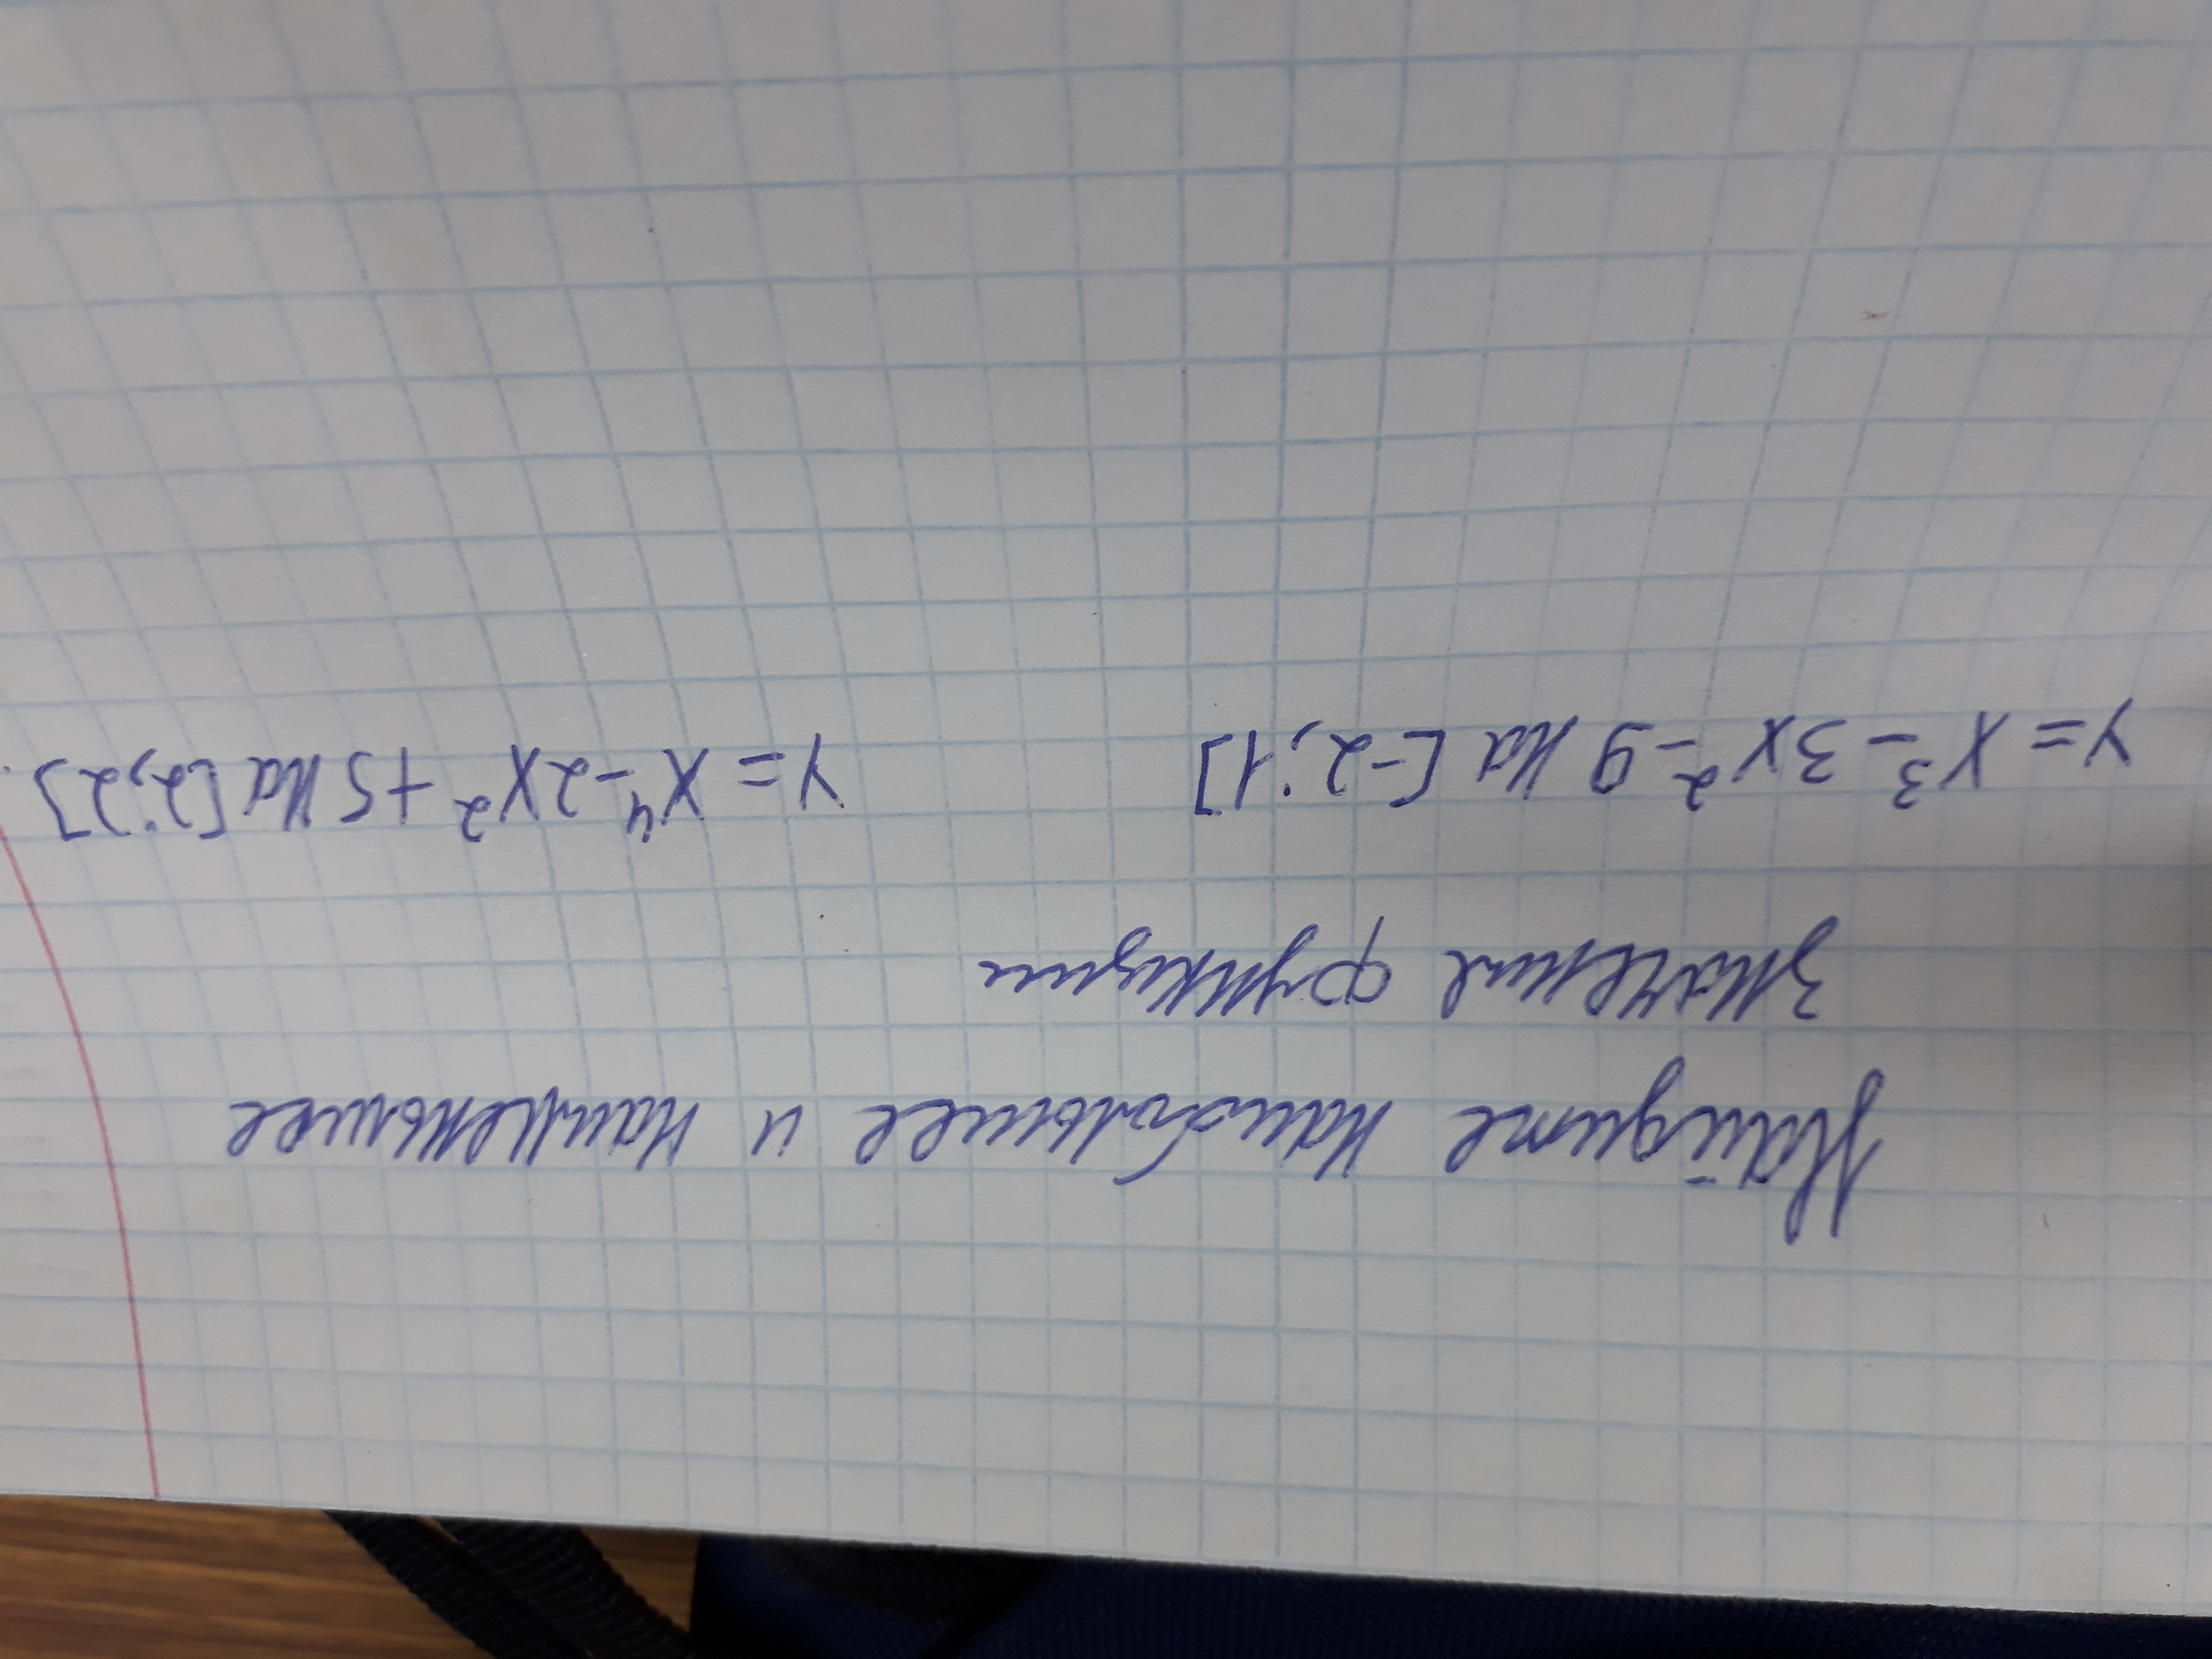 Найдите наибольшее и наименьшее
значение функции
y = x³ - 3x² - 9 на [-2;1]
y = x⁴ - 2x² + 5 на [2;2]